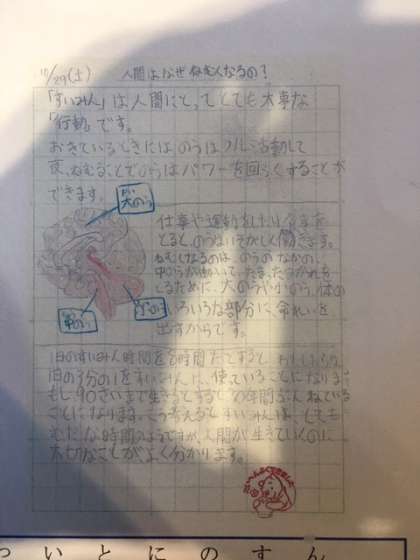 10/29(土) 人間はなぜねむくなるの?
「すいみん」は人間にとってとても大事な
「行動」です。
おきているときにはのうはフル活動して
夜、ねむることでのうはパワーを回ふくすることが
できます。
大のう
仕事や運動をしたり
とると、のうはいそがしく働きます。
ねむくなるのは、のうのなかの
中のうが働いて、たまったつかれを
とるために、大のうや小のう、体の
いろいろな部分に命れいを
出すからです。
小のう
中のう
1日のすいみん時間を8時間だとすると、わたしたちは
1日の3分の1をすいみんに使っていることになります。
もし90さいまで生きるとすると30年間ぶんねている
ことになります。こう考えるとすいみんはとても
むだな時間のようですが、人間が生きていくのに
大切なことがよく分かります。
ついとにのすん